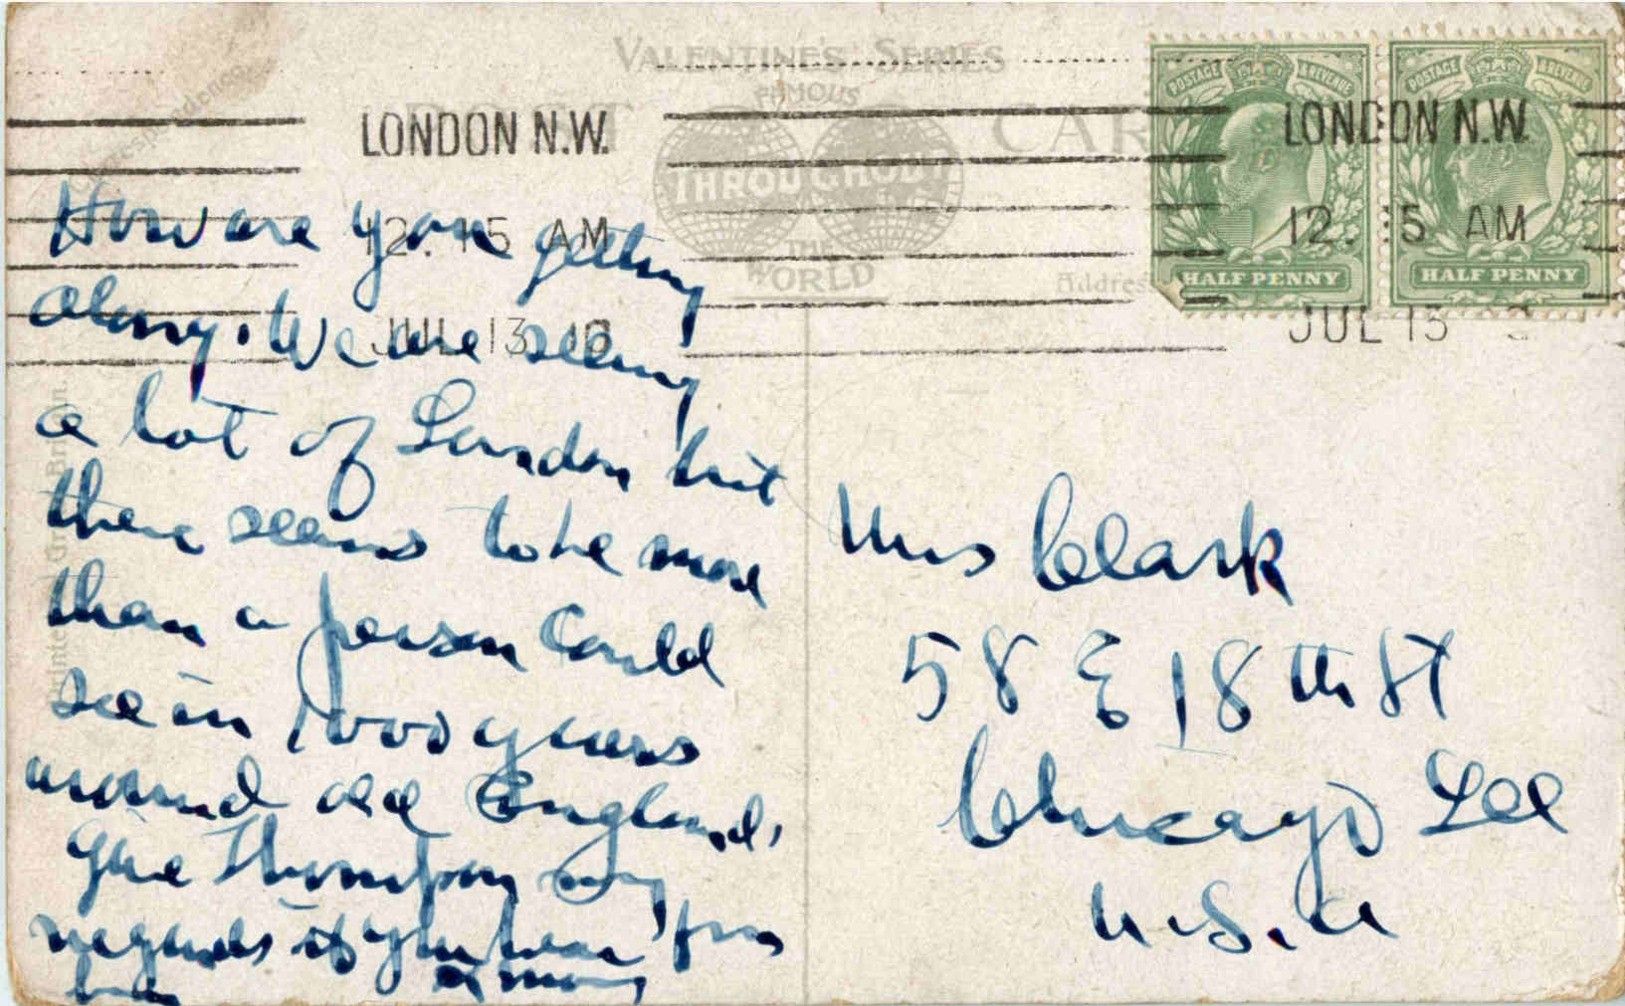 VALENTINE'S SERIES
FAMOUS
POST CAR
THROUGHOUT
THE
WORLD
Correspondence.
Address
POSTAGE & REVENUE
POSTAGE & REVENUE
HALF PENNY
HALF PENNY
LONDON N.W.
12. 15 AM
JUL 13
LONDON N.W.
12. 15 AM
JUL 13
How are you getting
along. We are seeing
a lot of London but
there seems to be more
than a person could
see in 1000 years
around old England.
Give Thompson my
regards if you hear from
him
Mrs Clark
58 E 18th St
Chicago Ill
U.S.A
Printed in Great Britain.